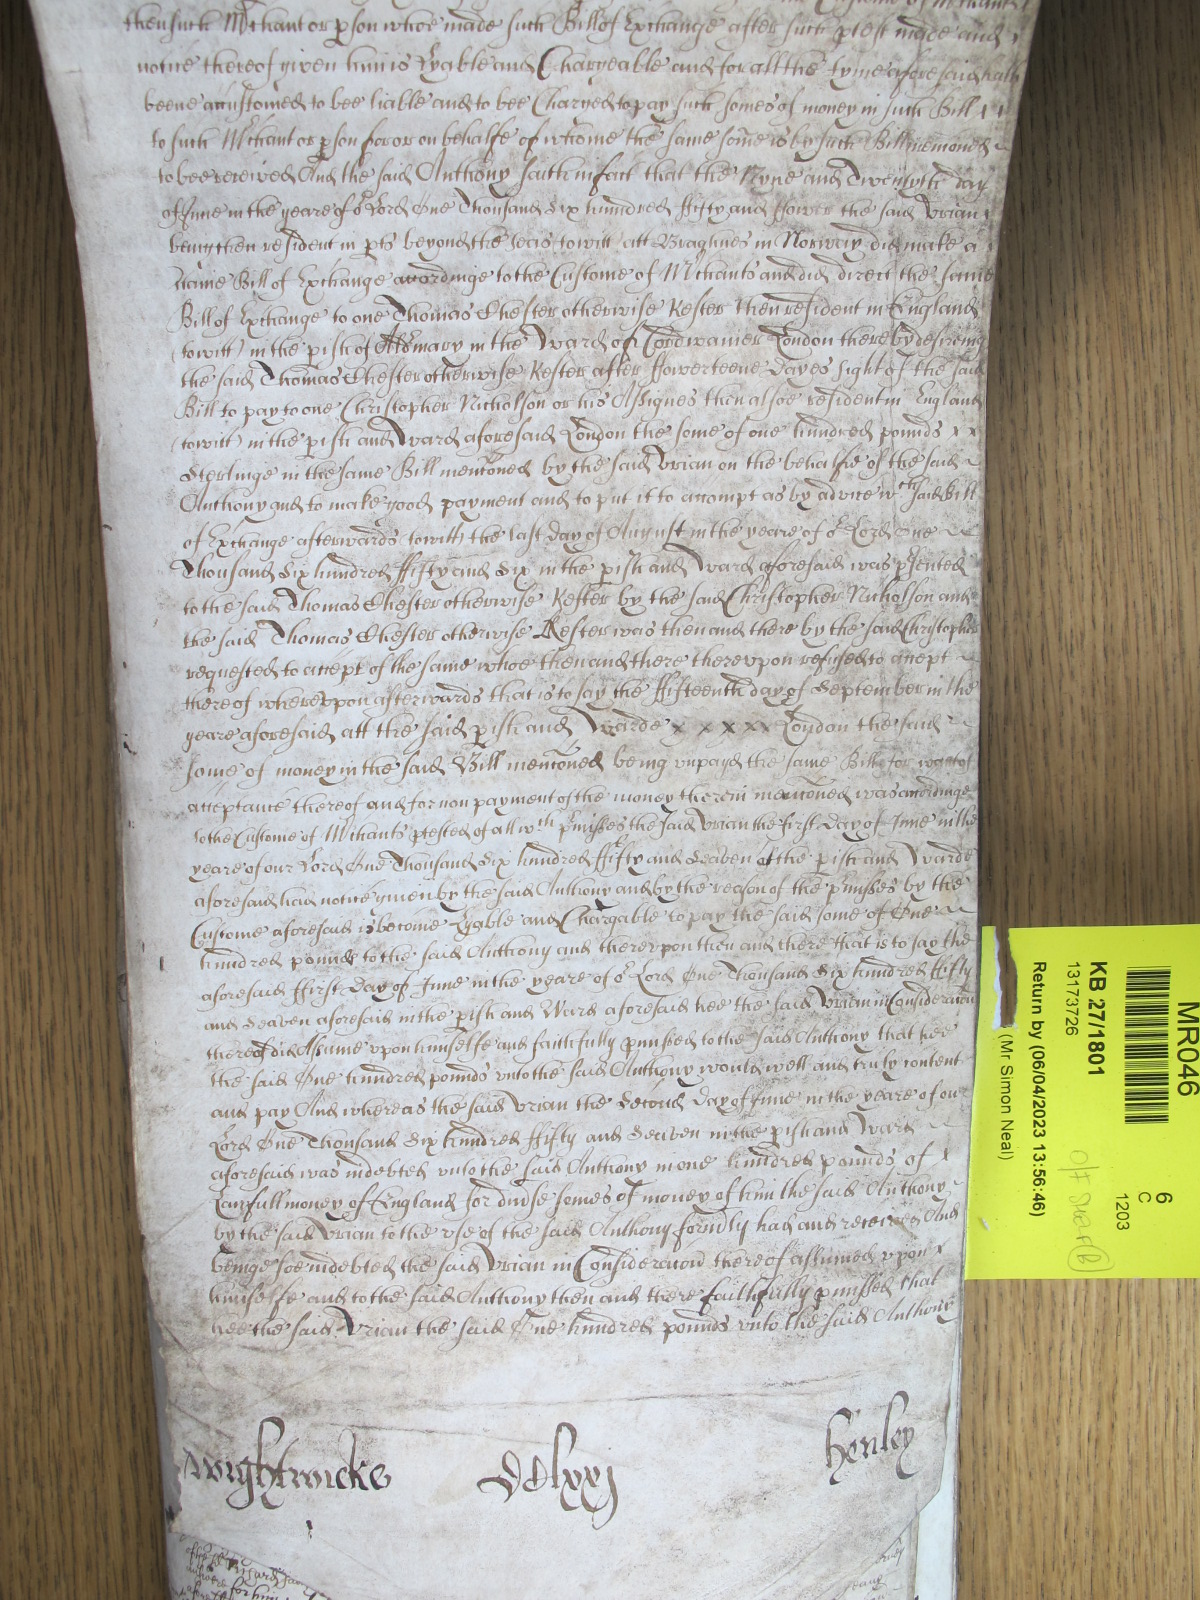 then such M'chant or pson whoe made such Bill of Exchange after such ptest made and
notice thereof given him is Lyable and Chargeable and for all the tyme aforesaid hath
beene accustomed to bee liable and to bee Charged to pay such somes of money in such Bill
to such M'chant or pson for or on behalfe of whome the same some is by such Bill mencōned
to bee received And the said Anthony saith in fact that the Nyne and Twentyth day
of June in the yeare of or Lord One Thousand Six hundred ffifty and ffower the said Vrian
being then resident in pts beyond the seas to witt att in Norway did make a
taine Bill of Exchange accordinge to the Custome of M'chants and did direct the same
Bill of Exchange to one Thomas Chester otherwise Kester then resident in England
(to witt) in the pish of Aldmary in the Ward of Cordwainer London thereby desireing
the said Thomas Chester otherwise Kester after ffowerteene dayes sight of the said
Bill to pay to one Christopher Nicholson or his Assignes then alsoe resident in England
(to witt) in the pish and Ward aforesaid London the some of one hundred pounds x x
Sterlinge in the same Bill mencōned by the said Vrian on the behalfe of the said
Anthony and to make good payment and to put it to accompt as by advice wch said Bill
of Exchange afterwards (to witt) the last day of August in the yeare of or Lord One
Thousand Six hundred ffifty and Six in the pish and Ward aforesaid was psented
to the said Thomas Chester otherwise Kester by the said Christopher Nicholson and
the said Thomas Chester otherwise Kester was then and there by the said Christopher
requested to accept of the same whoe then and there therevpon refused to accept
thereof wherevpon afterwards that is to say the ffifteenth day of September in the
yeare aforesaid att the said pish and Warde x x x x x London the said
some of money in the said Bill mencōned being vnpayd the same Bill for want of
acceptance thereof and for non payment of the money therein mencōned was accordinge
to the Custome of M'chants ptested of all wch pmisses the said Vrian the first day of June in the
yeare of our Lord One Thousand Six hundred ffifty and Seaven att the pish and Warde
aforesaid had notice given by the said Anthony and by the reason of the pmisses by the
Custome aforesaid is become Lyable and Chargable to pay the said some of One
hundred pounds to the said Anthony and therevpon then and there that is to say the
aforesaid ffirst day of June in the yeare of or Lord One Thousand Six hundred ffifty
and Seaven aforesaid in the pish and Ward aforesaid hee the said Vrian in Consideracōn
thereof did Assume vpon himselfe and faithfully pmissed to the said Anthony that hee
the said One hundred pounds vnto the said Anthony would well and truly content
and pay And whereas the said Vrian the Second day of June in the yeare of our
Lord One Thousand Six hundred ffifty and Seaven in the pish and Ward
aforesaid was indebted vnto the said Anthony in one hundred pounds of
Lawfull money of England for divse somes of money of him the said Anthony
by the said Vrian to the vse of the said Anthony formly had and received And
beinge soe indebted the said Vrian in Consideracōn thereof assumed vpon
himselfe and to the said Anthony then and there faithfully pmissed that
hee the said Vrian the said One hundred pounds vnto the said Anthony
Wightwicke DClxxj Henley
MR046
6
C
1203
KB 27/1801
13173726
Return by (06/04/2023 13:56:46)
(Mr Simon Neal)